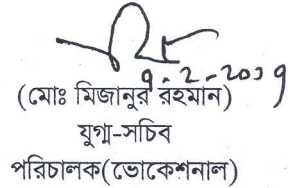 ৭-2-২০১৭
(মোঃ মিজানুর রহমান)
যুগ্ম-সচিব
পরিচালক(ভোকেশনাল)